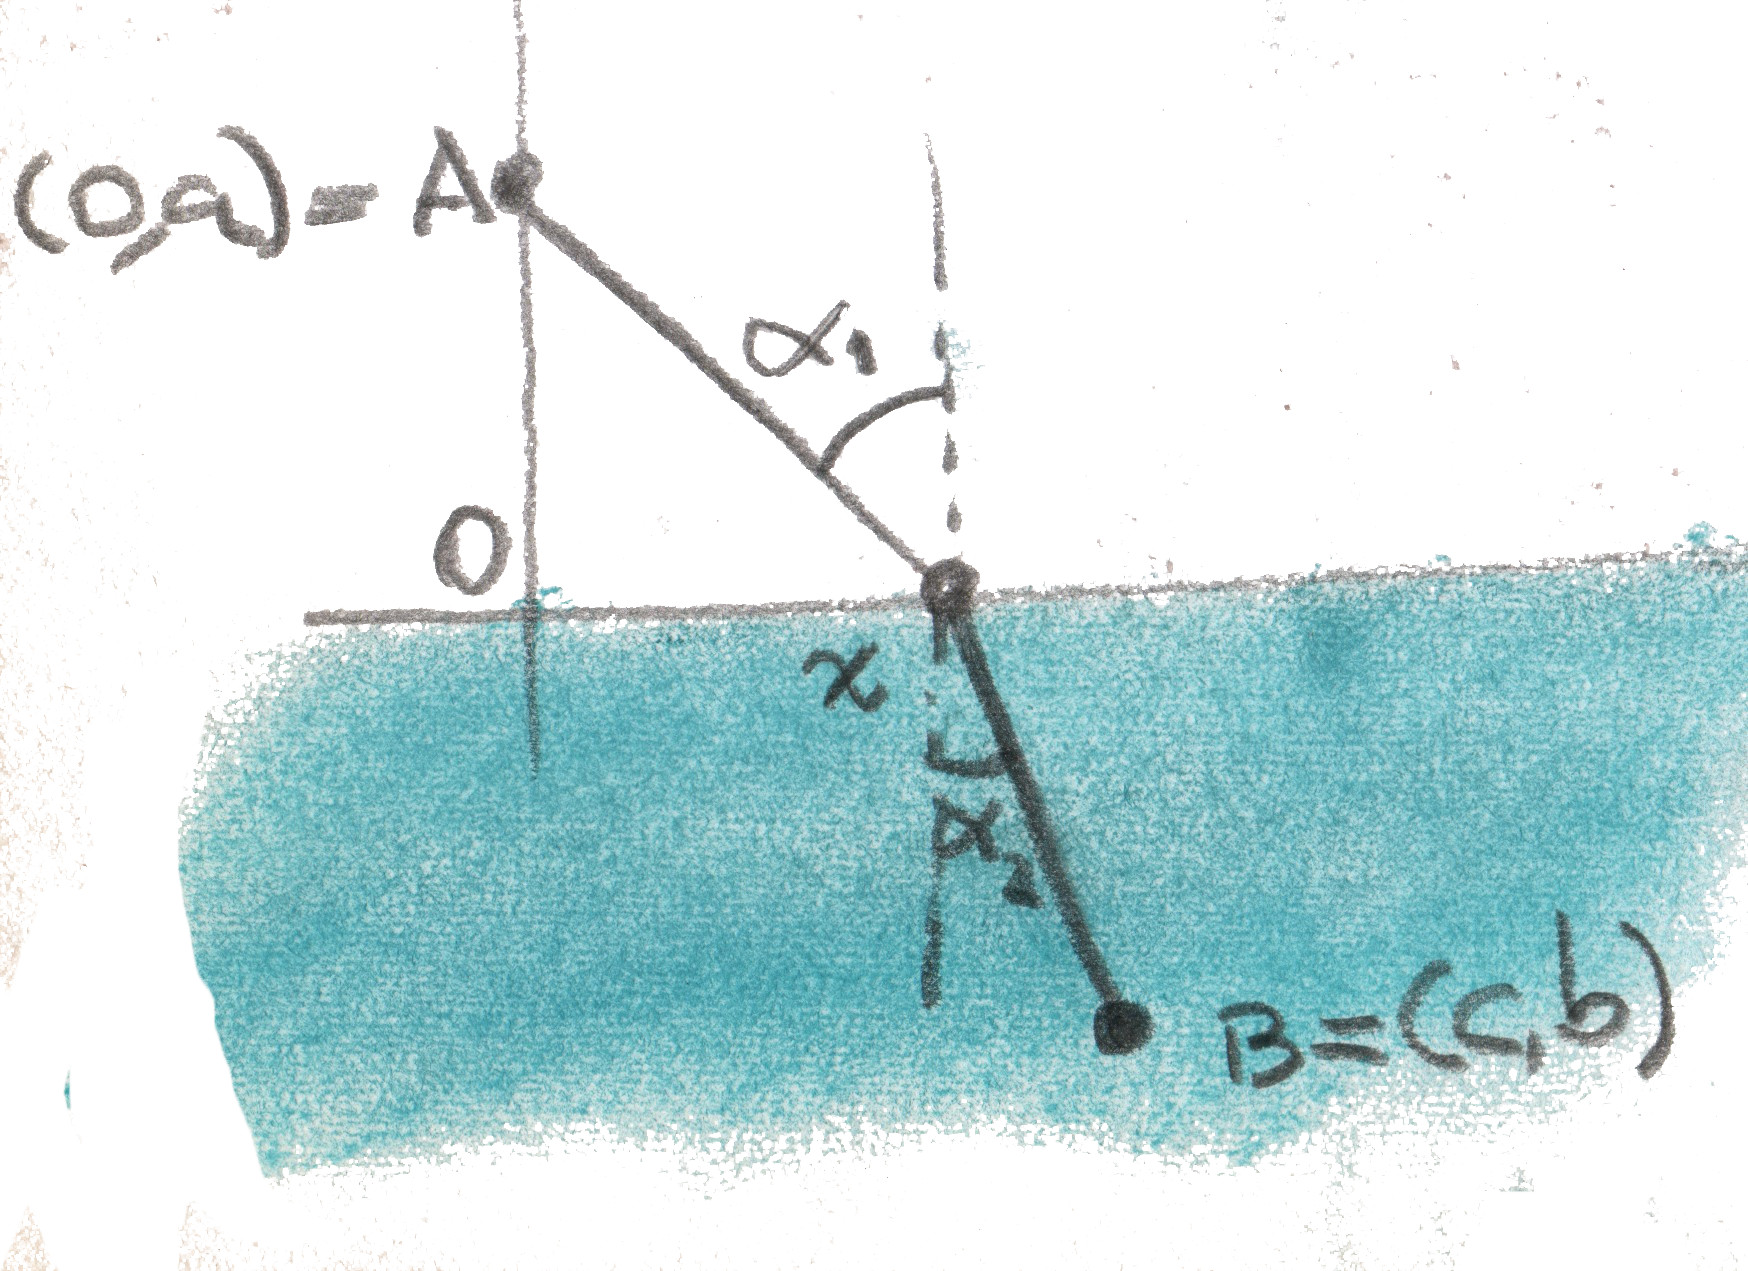 (0,a)=A
α₁
O
x
α₂
B=(c,b)